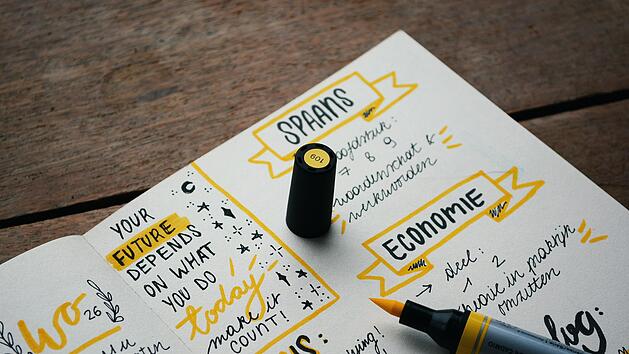 YOUR
FUTURE
DEPENDS
ON WHAT
YOU DO
today
make it
COUNT!
WO
26
SPAANS
7 8 9
woordenschat &
werkwoorden
109
ECONOMIE
→ deel:
1 2
in praktijk
omzetten